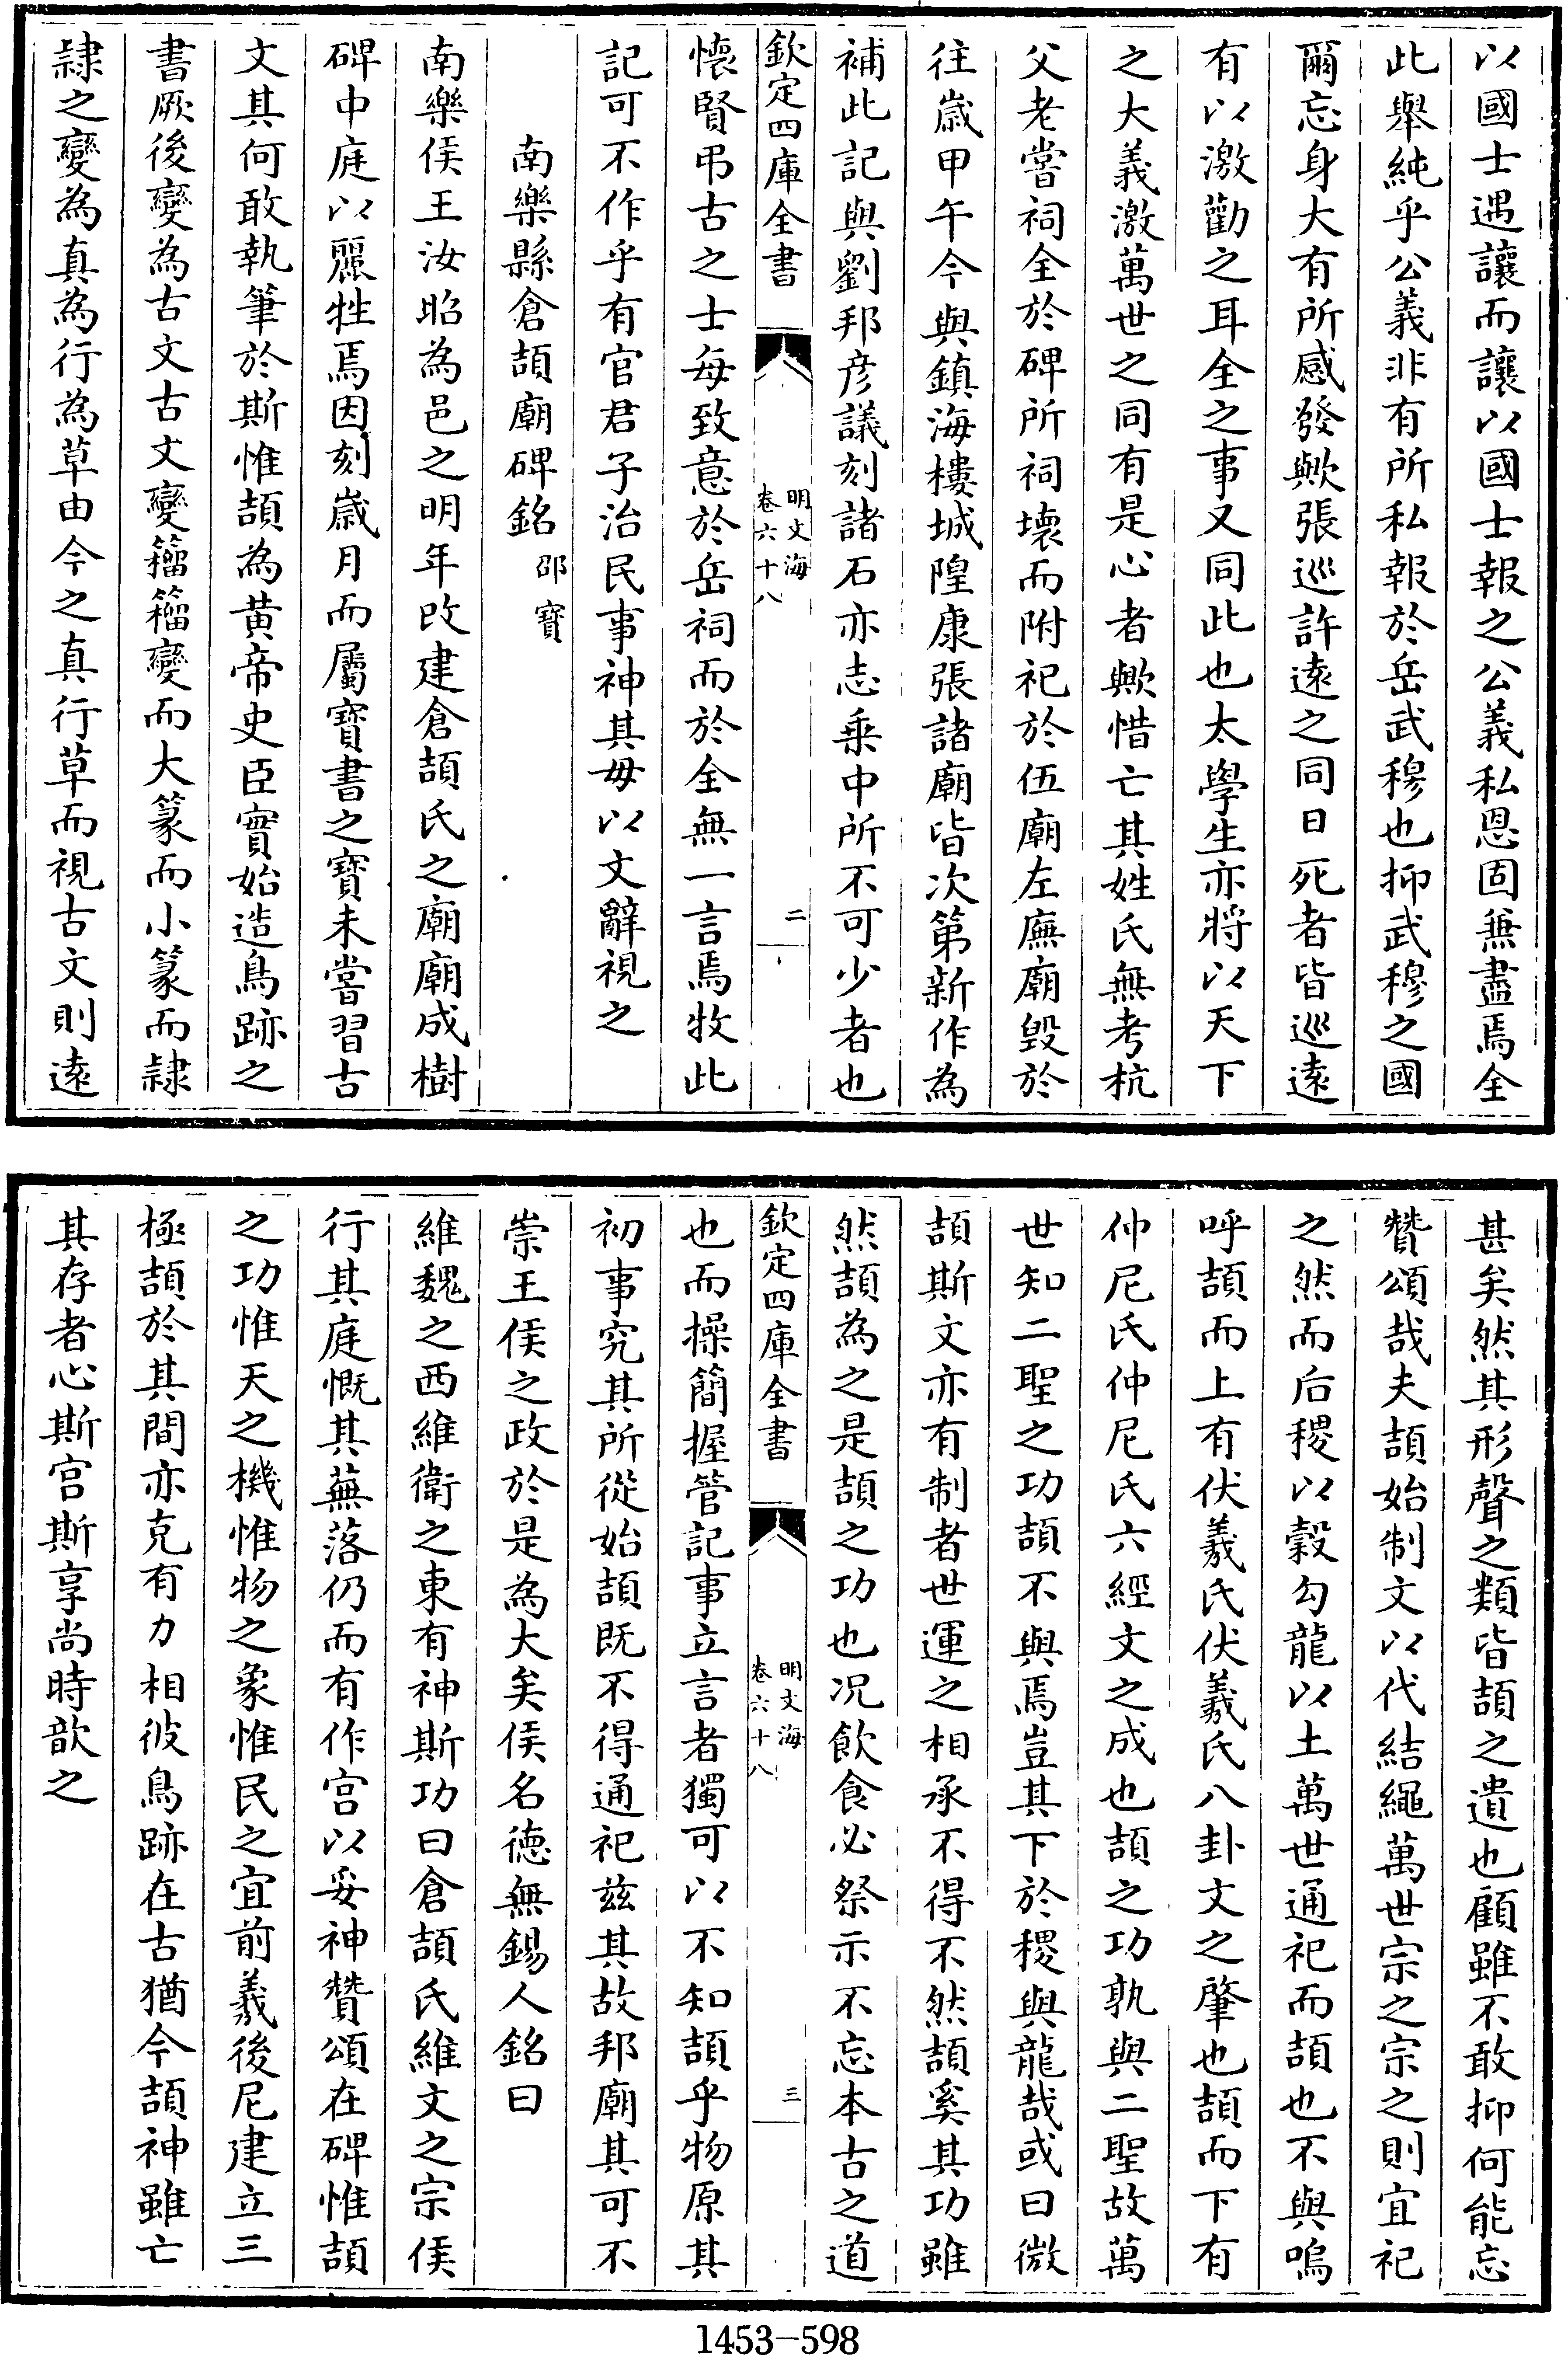 以國士遇讓而讓以國士報之公義私恩固兼盡焉全
此舉純乎公義非有所私報於岳武穆也抑武穆之國
爾忘身大有所感發歟張巡許遠之同日死者皆巡遠
有以激勸之耳全之事又同此也太學生亦將以天下
之大義激萬世之同有是心者歟惜亡其姓氏無考杭
父老嘗祠全於碑所祠壞而附祀於伍廟左廡廟毀於
往歲甲午今與鎮海樓城隍康張諸廟皆次第新作為
補此記與劉邦彦議刻諸石亦志乗中所不可少者也
欽定四庫全書
明文海
卷六十八
二
懷賢弔古之士每致意於岳祠而於全無一言焉牧此
記可不作乎有官君子治民事神其毋以文辭視之
南樂縣倉頡廟碑銘邵寳
南樂侯王汝昭為邑之明年改建倉頡氏之廟廟成樹
碑中庭以麗牲焉因刻歲月而屬寳書之寳未嘗習古
文其何敢執筆於斯惟頡為黄帝史臣實始造鳥跡之
書厥後變為古文古文變籀籀變而大篆而小篆而隸
隸之變為真為行為草由今之真行草而視古文則遠
甚矣然其形聲之類皆頡之遺也顧雖不敢抑何能忘
贊頌哉夫頡始制文以代結繩萬世宗之宗之則宜祀
之然而后稷以穀勾龍以土萬世通祀而頡也不與嗚
呼頡而上有伏羲氏伏羲氏八卦文之肇也頡而下有
仲尼氏仲尼氏六經文之成也頡之功孰與二聖故萬
世知二聖之功頡不與焉豈其下於稷與龍哉或曰微
頡斯文亦有制者世運之相承不得不然頡奚其功雖
然頡為之是頡之功也况飲食必祭示不忘本古之道
欽定四庫全書
明文海
卷六十八
三
也而操簡握管記事立言者獨可以不知頡乎物原其
初事究其所從始頡既不得通祀兹其故邦廟其可不
崇王侯之政於是為大矣侯名德無錫人銘曰
維魏之西維衛之東有神斯功曰倉頡氏維文之宗侯
行其庭慨其蕪落仍而有作宫以妥神贊頌在碑惟頡
之功惟天之機惟物之象惟民之宜前羲後尼建立三
極頡於其間亦克有力相彼鳥跡在古猶今頡神雖亡
其存者心斯宫斯享尚時歆之
1453-598